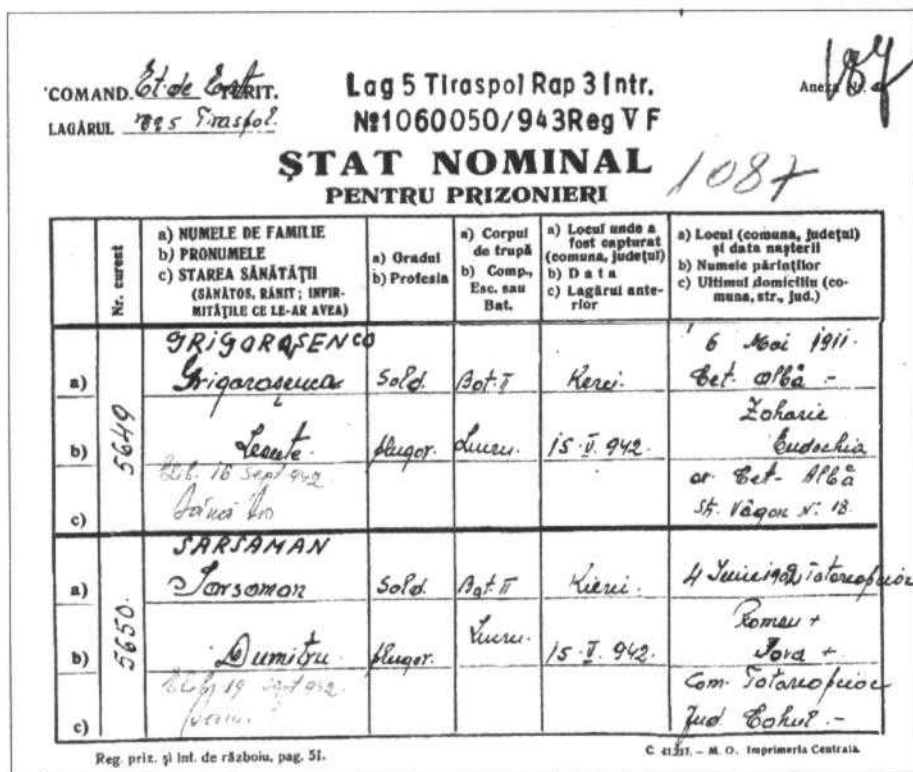 COMAND. Et. de Est TERIT.
LAGĂRUL No 5 Tiraspol.
Lag 5 Tiraspol Rap 3 Intr.
№1060050/943 Reg V F
Anexa Nr.
187
ȘTAT NOMINAL
PENTRU PRIZONIERI
1087
Nr. curent
a) NUMELE DE FAMILIE
b) PRONUMELE
c) STAREA SĂNĂTĂȚII
(SĂNĂTOS, RĂNIT; INFIR-
MITĂȚILE CE LE-AR AVEA)
a) Gradul
b) Profesia
a) Corpul
de trupă
b) Comp.,
Esc. sau
Bat.
a) Locul unde a
fost capturat
(comuna, județul)
b) Data
c) Lagărul ante-
rior
a) Locul (comuna, județul)
și data nașterii
b) Numele părinților
c) Ultimul domiciliu (co-
muna, str., jud.)
5649
GRIGORAȘENCO
a) Grigorașenco Sold. Bat. II Kerci. 6 Mai 1911.
Cet. Albă -
b) plugar. Lucru. 15.V.942. Zaharie
Eudochia
Lib. 16 Sept 942
c) or Cet- Albă
Str. Vagon N: 18.
5650.
SARSAMAN
a) Sarsaman Sold. Bat II Kierci. 4 Iunie 1902
b) Dumitru. plugar. Lucru. 15.V.942. Roman +
+
Lib. 19 sept 942
c) Com.
Jud Cahul. -
Reg. priz. și int. de războiu, pag. 51.
C. 41.217. – M. O. Imprimeria Centrală